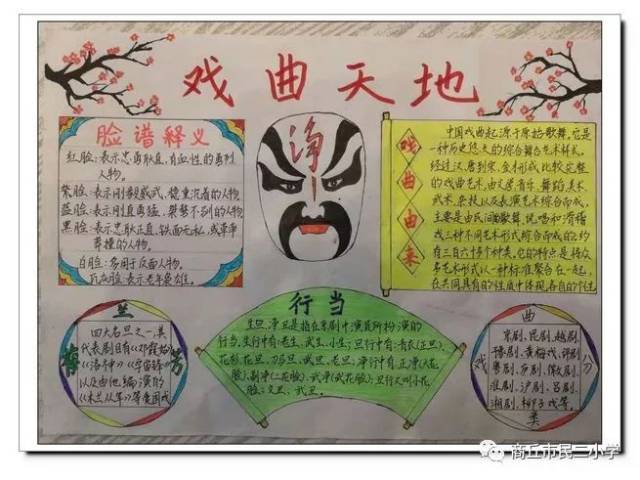 戏曲天地
脸谱释义
红脸:表示忠勇耿直,有血性的勇烈
人物。
紫脸:表示刚毅威武,稳重沉着的人物
蓝脸:表示刚直勇猛,桀骜不驯的人物
黑脸:表示忠耿正直,铁面无私,或
莽撞的人物。
白脸:多用于反面人物。
净
戏曲由来
中国戏曲起源于原始歌舞,它是
一种历史悠久的综合舞台艺术样式。
经过汉、唐到宋、金才形成比较完整
的戏曲艺术,由文学、音乐、舞蹈、美术、
武术、杂技以及表演艺术综合而成的
主要是由民间歌舞、说唱和滑稽
戏三种不同艺术形式综合而成的,约
有三百六十多个种类。它的特点是将众
多艺术形式以一种标准聚合在一起,
在共同具有的性质中体现各自的个性
兰
芳
四大名旦之一,其
代表剧目有《邓霞姑》
《洛神》《宇宙锋》
以及由他编演的
《木兰从军》等爱国戏
行当
生、旦、净、丑是指在京剧中演员所扮演的
行当。生行中有:老生、武生、小生;旦行中有:青衣(正旦)、
花衫、花旦、刀马旦、武旦、老旦;净行中有:正净(大花
脸)、副净(二花脸)、武净(武花脸);丑行又叫小花
脸:文丑、武丑。
曲
戏
分
类
京剧、昆剧、越剧、
豫剧、黄梅戏、评剧
粤剧、
淮剧、沪剧、吕剧、
湘剧、柳子戏等。
商丘市民三小学